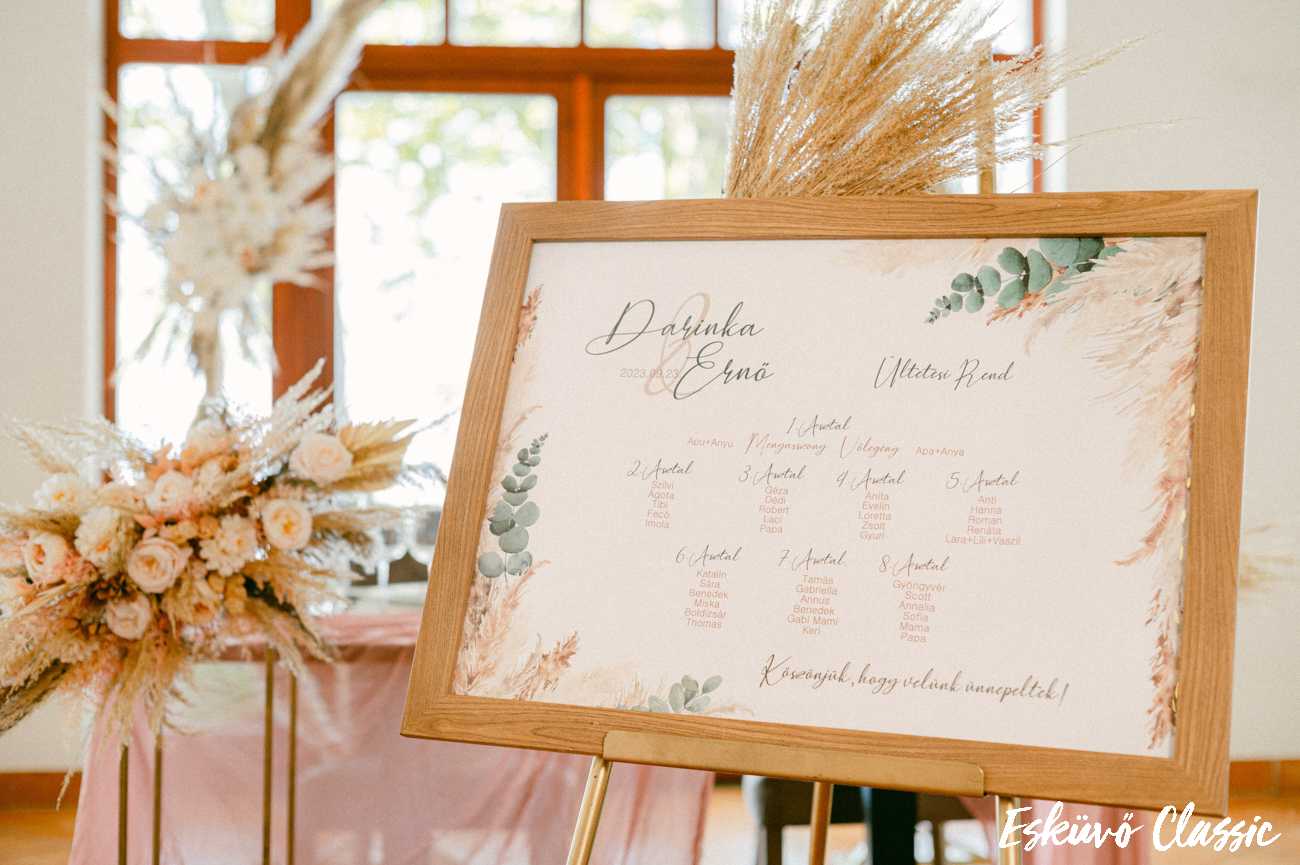 Darinka
&
2023.09.23.
Ernő
Ültetési Rend
1. Asztal
Apu+Anyu Menyasszony Vőlegény Apa+Anya
2. Asztal
Szilvi
Ágota
Tibi
Fecó
Imola
3. Asztal
Géza
Dédi
Robert
Laci
Papa
4. Asztal
Anita
Evelin
Loretta
Zsolt
Gyuri
5. Asztal
Anti
Hanna
Roman
Renáta
Lara+Lili+Vaszil
6. Asztal
Katalin
Sára
Benedek
Miska
Boldizsár
Thomas
7. Asztal
Tamás
Gabriella
Annus
Benedek
Gabi Mami
Keri
8. Asztal
Gyöngyvér
Scott
Annalia
Sofia
Mama
Papa
Köszönjük, hogy velünk ünnepeltek!
Esküvő Classic